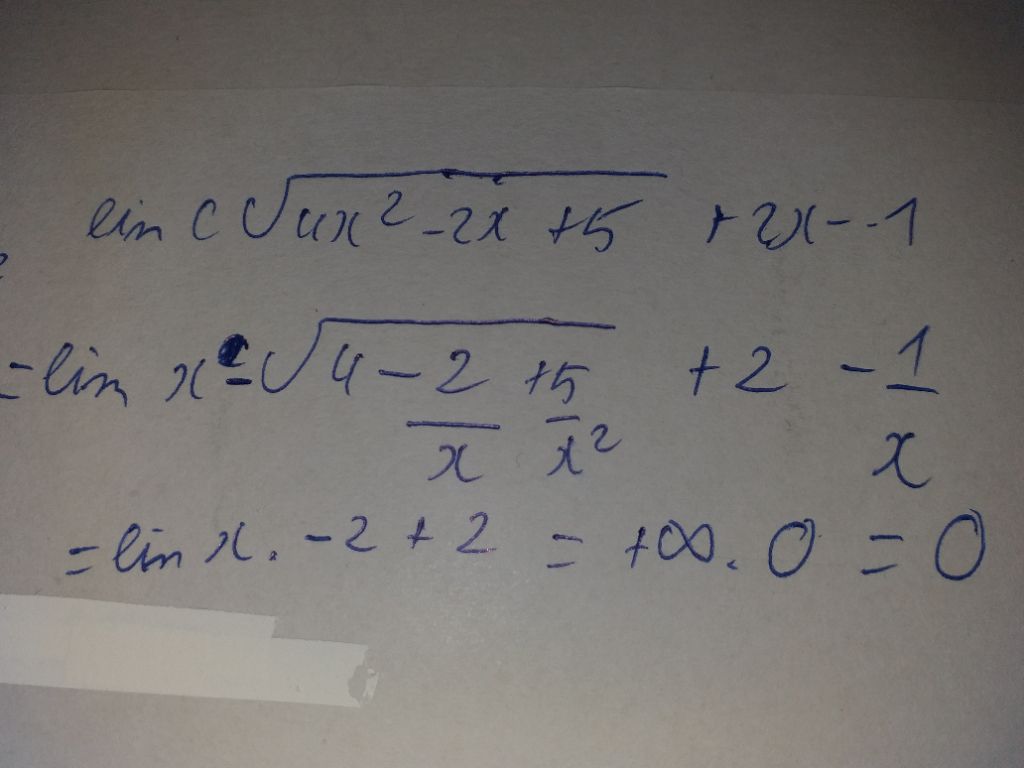 lim (√4x² -2x +5 +2x - 1
= lim x - √4 - 2/x + 5/x² + 2 - 1/x
= lim x. -2 + 2 = +∞. 0 = 0